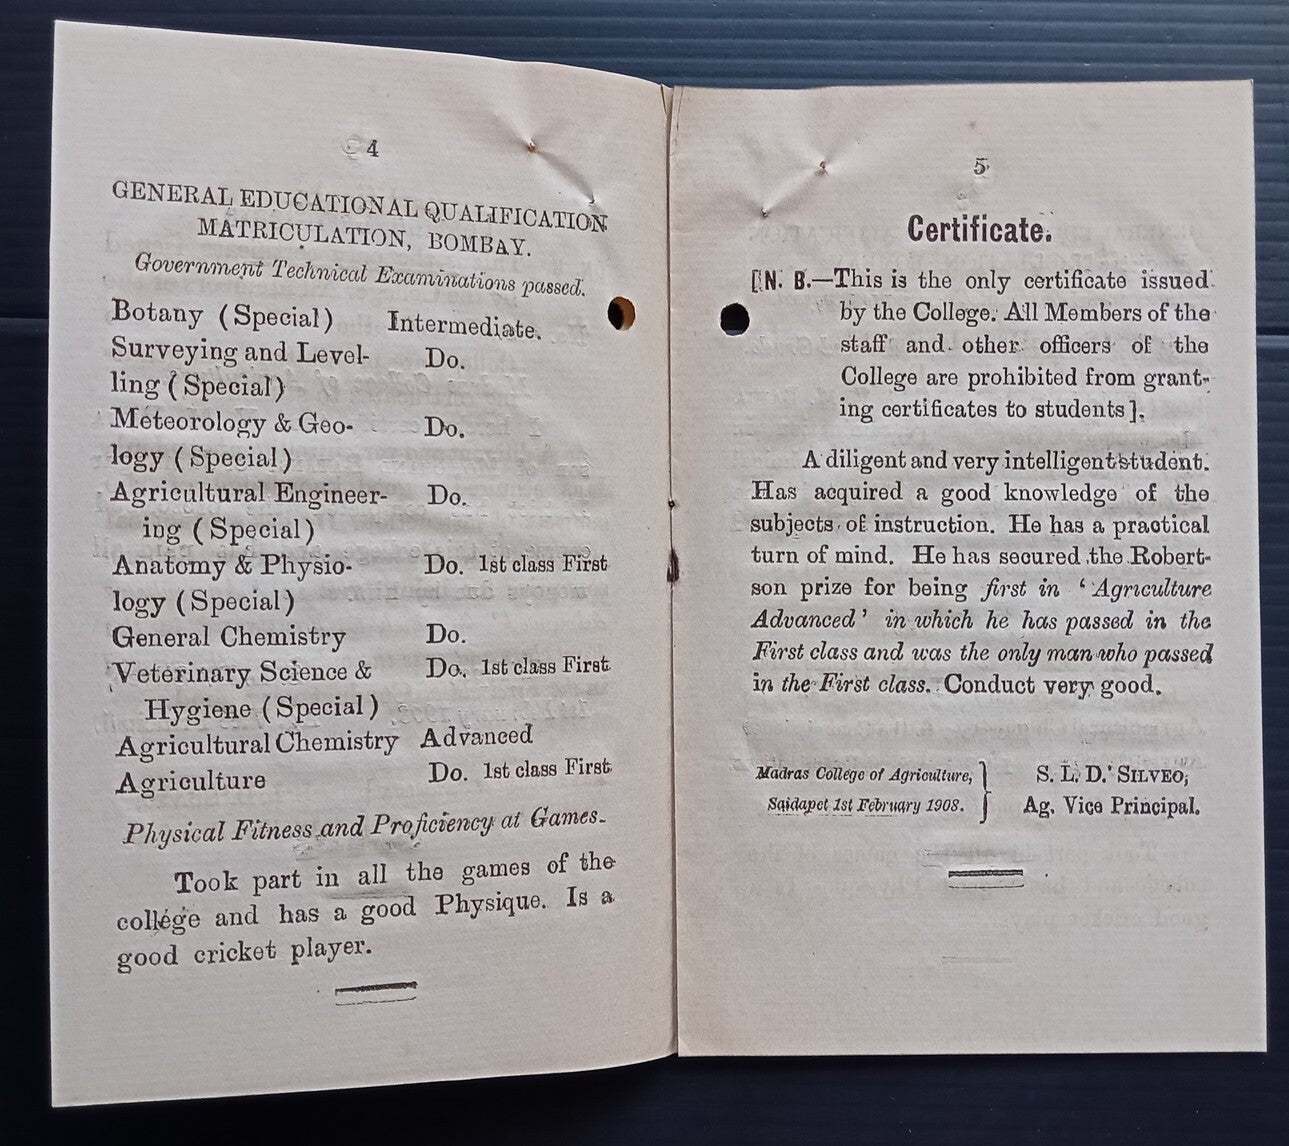 4
GENERAL EDUCATIONAL QUALIFICATION
MATRICULATION, BOMBAY.
Government Technical Examinations passed.
Botany (Special) Intermediate.
Surveying and Level- Do.
ling (Special)
Meteorology & Geo- Do.
logy (Special)
Agricultural Engineer- Do.
ing (Special)
Anatomy & Physio- Do. 1st class First
logy (Special)
General Chemistry Do.
Veterinary Science & Do. 1st class First
Hygiene (Special)
Agricultural Chemistry Advanced
Agriculture Do. 1st class First
Physical Fitness and Proficiency at Games.
Took part in all the games of the
college and has a good Physique. Is a
good cricket player.
5
Certificate.
[N. B.—This is the only certificate issued
by the College. All Members of the
staff and other officers of the
College are prohibited from grant-
ing certificates to students].
A diligent and very intelligent student.
Has acquired a good knowledge of the
subjects of instruction. He has a practical
turn of mind. He has secured the Robert-
son prize for being first in ‘Agriculture
Advanced’ in which he has passed in the
First class and was the only man who passed
in the First class. Conduct very good.
Madras College of Agriculture, } S. L. D.' SILVEO,
Saidapet 1st February 1908. } Ag. Vice Principal.